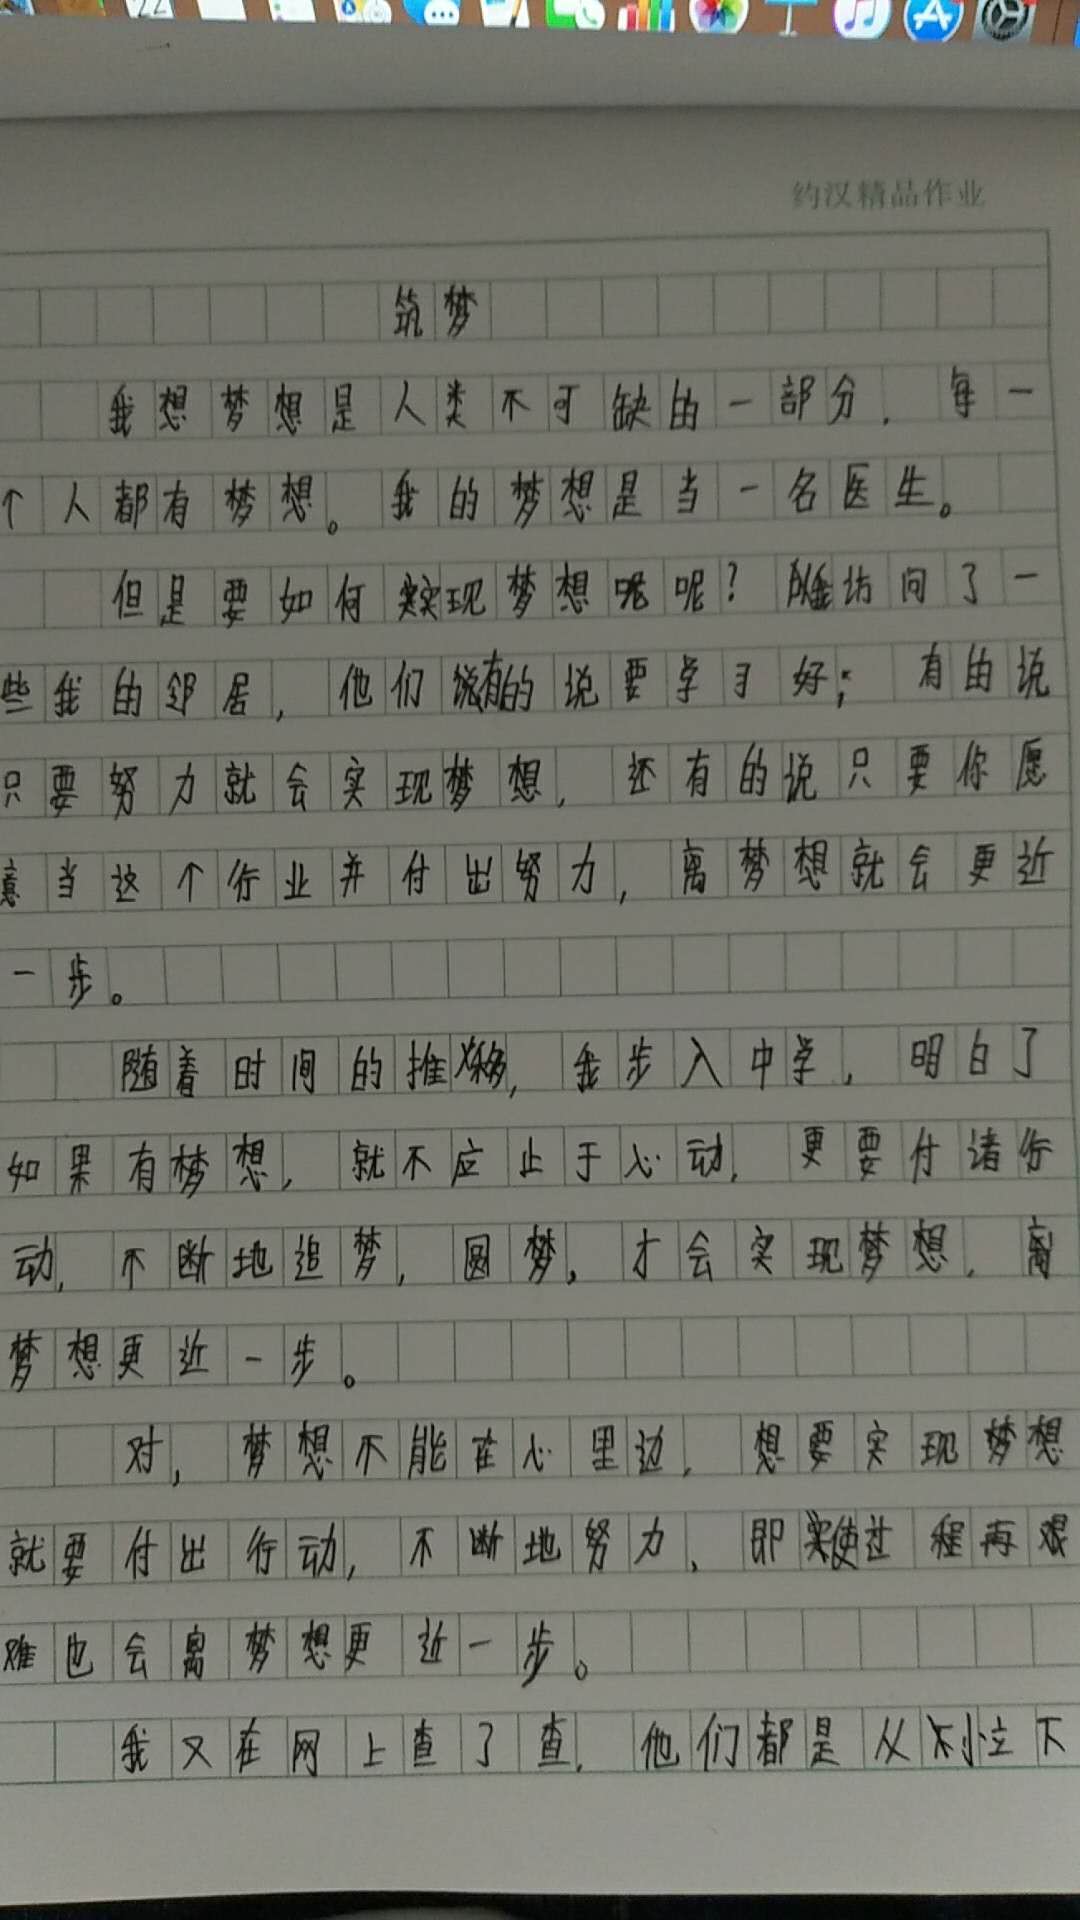 22
约汉精品作业
筑梦
我想梦想是人类不可缺的一部分，每一
个人都有梦想。我的梦想是当一名医生。
但是要如何实现梦想呢呢？访问了一
些我的邻居，他们有的说要学习好；有的说
只要努力就会实现梦想，还有的说只要你愿
意当这个行业并付出努力，离梦想就会更近
一步。
随着时间的推移，我步入中学，明白了
如果有梦想，就不应止于心动，更要付诸行
动，不断地追梦，圆梦，才会实现梦想，离
梦想更近一步。
对，梦想不能在心里边，想要实现梦想
就要付出行动，不断地努力，即使过程再艰
难也会离梦想更近一步。
我又在网上查了查，他们都是从小立下